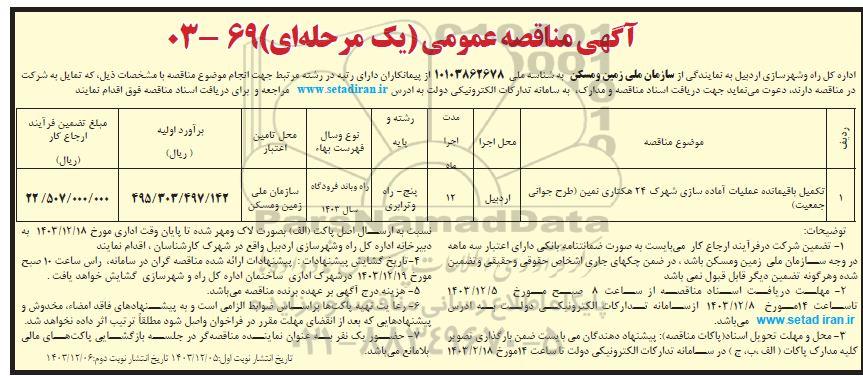 آگهی مناقصه عمومی (یک مرحله‌ای) ۶۹ -۰۳
اداره کل راه وشهرسازی اردبیل به نمایندگی از سازمان ملی زمین ومسکن به شناسه ملی ۱۰۱۰۳۸۶۲۶۷۸ از پیمانکاران دارای رتبه در رشته مرتبط جهت انجام موضوع مناقصه با مشخصات ذیل، که تمایل به شرکت
در مناقصه دارند، دعوت می‌نماید جهت دریافت اسناد مناقصه و مدارک، به سامانه تدارکات الکترونیکی دولت به ادرس www.setadiran.ir مراجعه و برای دریافت اسناد مناقصه فوق اقدام نمایند
ردیف
موضوع مناقصه
محل اجرا
مدت
اجرا
ماه
رشته و
پایه
نوع وسال
فهرست بهاء
محل تامین
اعتبار
برآورد اولیه
(ریال)
مبلغ تضمین فرآیند
ارجاع کار
(ریال)
۱
تکمیل باقیمانده عملیات آماده سازی شهرک ۲۴ هکتاری نمین (طرح جوانی
جمعیت)
اردبیل
۱۲
پنج- راه
وترابری
راه وباند فرودگاه
سال ۱۴۰۳
سازمان ملی
زمین ومسکن
۴۹۵/۳۰۳/۴۹۷/۱۴۲
۲۲/۵۰۷/۰۰۰/۰۰۰
توضیحات:
۱- تضمین شرکت درفرآیند ارجاع کار می‌بایست به صورت ضمانتنامه بانکی دارای اعتبار سه ماهه
در وجه سازمان ملی زمین ومسکن باشد ، در ضمن چکهای جاری اشخاص حقوقی وحقیقی و تضمین
شده وهرگونه تضمین دیگر قابل قبول نمی باشد
۲- مهلت دریافت اسناد مناقصه از ساعت ۸ صبح مورخ ۱۴۰۳/۱۲/۵
تاساعت ۱۴مورخ ۱۴۰۳/۱۲/۸ ازسامانه تدارکات الکترونیکی دولت به ادرس
www.setad iran.ir می‌باشد.
۳- محل و مهلت تحویل اسناد(پاکات مناقصه): پیشنهاد دهندگان می بایست ضمن بارگذاری تصویر
کلیه مدارک پاکات ( الف ،ب، ج ) در سامانه تدارکات الکترونیکی دولت تا ساعت ۱۴مورخ ۱۴۰۳/۱۲/۱۸
نسبت به ارسال اصل پاکت (الف) بصورت لاک ومهر شده تا پایان وقت اداری مورخ ۱۴۰۳/۱۲/۱۸ به
دبیرخانه اداره کل راه وشهرسازی اردبیل واقع در شهرک کارشناسان ، اقدام نمایند
۴- تاریخ گشایش پیشنهادات : پیشنهادات ارائه شده مناقصه گران در سامانه، راس ساعت ۱۰ صبح
مورخ ۱۴۰۳/۱۲/۱۹ درشهرک اداری ساختمان اداره کل راه و شهرسازی گشایش خواهد یافت .
۵- هزینه درج آگهی بر عهده برنده مناقصه می‌باشد.
۶- رعایت تهیه پاکت‌ها براساس ضوابط الزامی است و به پیشنهادهای فاقد امضاء، مخدوش و
پیشنهادهایی که بعد از انقضای مهلت مقرر در فراخوان واصل شود مطلقاً ترتیب اثر داده نخواهد شد.
۷- حضور یک نفر به عنوان نماینده مناقصه‌گر در جلسه بازگشایی پاکت‌های مالی
بلامانع می‌باشد.
تاریخ انتشار نوبت اول: ۱۴۰۳/۱۲/۰۵ تاریخ انتشار نوبت دوم: ۱۴۰۳/۱۲/۰۶
ParsNamadData
۰۲۱-۸۸۳۴۹۶۷۰-۵